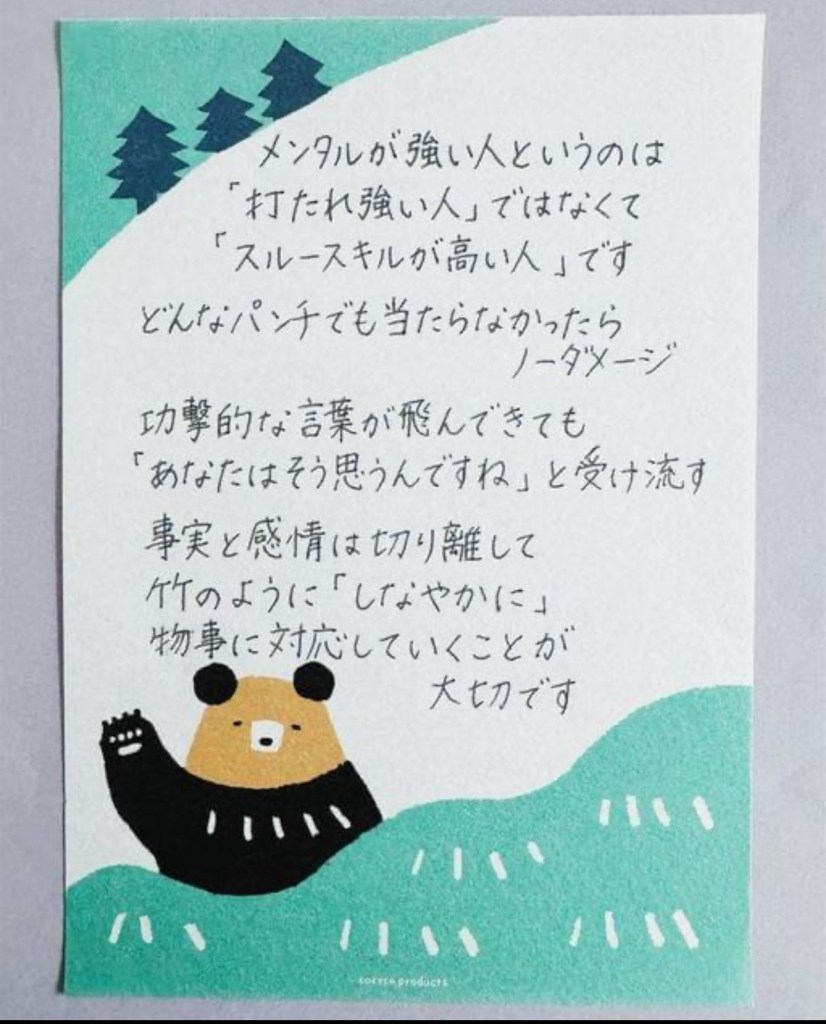 メンタルが強い人というのは
「打たれ強い人」ではなくて
「スルースキルが高い人」です
どんなパンチでも当たらなかったら
ノーダメージ
功撃的な言葉が飛んできても
「あなたはそう思うんですね」と受け流す
事実と感情は切り離して
竹のように「しなやかに」
物事に対応していくことが
大切です
products